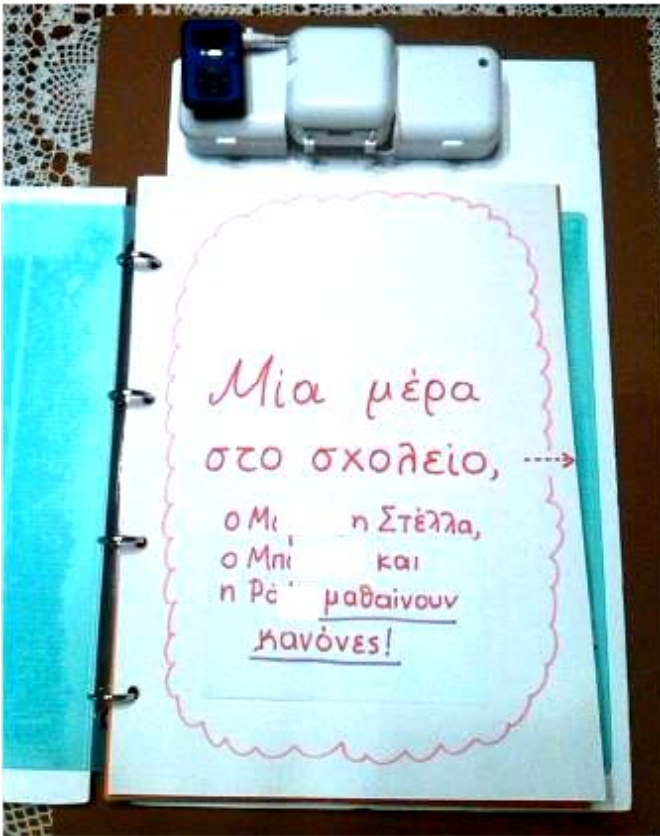 Μία μέρα
στο σχολείο,
η Στέλλα,
ο
και
η μαθαίνουν
κανόνες!